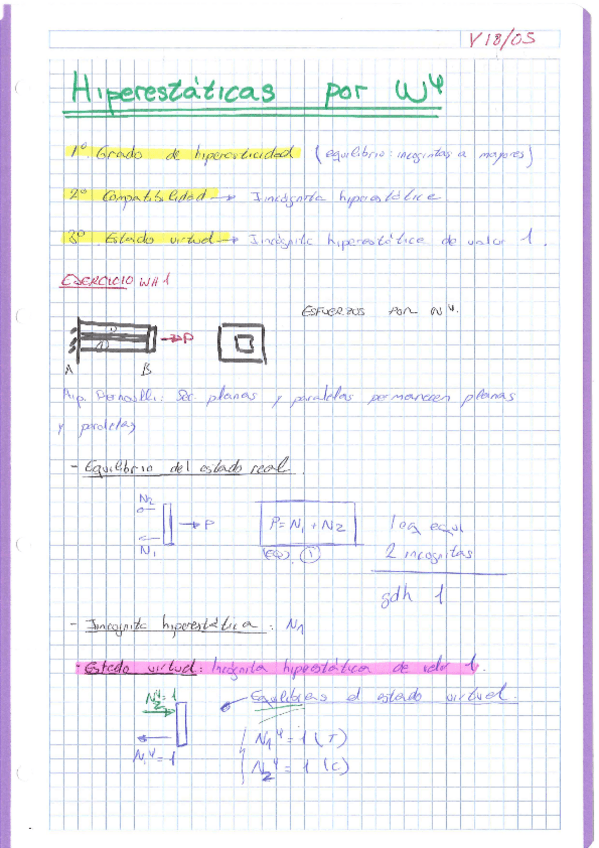 V 18/05
Hiperestáticas por Wψ
1º Grado de hiperesticidad (equilibrio: incognitas a mayores)
2º Compatibilidad → Incógnita hiperestática
3º Estado virtual → Incógnita hiperestática de valor 1.
EJERCICIO WH1
ESFUERZOS POR Wψ.
2
1
→P
A B
Hip Bernoulli: Sec. planas y paralelas permanecen planas
y paralelas
- Equilibrio del estado real.
N2
→ P
N1
P = N1 + N2
(EQ). ①
1 eq equi
2 incognitas
gdh 1
- Incognita hiperestática: N1
- Estado virtual: Incógnita hiperestática de valor 1.
N2ψ = 1
Equilibrio el estado virtual.
N1ψ = 1
N1ψ = 1 (T)
N2ψ = 1 (C)